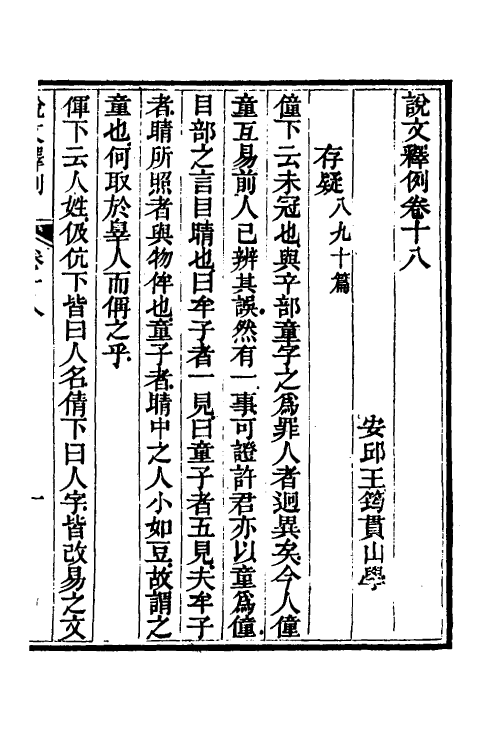 說文釋例卷十八
安邱王筠貫山學
存疑八九十篇
僮下云未冠也與䇂部童字之爲罪人者迥異矣今人僮
童互易前人已辨其誤然有一事可證許君亦以童爲僮
目部之言目睛也曰牟子者一見曰童子者五見夫牟子
者睛所照者與物侔也童子者睛中之人小如豆故謂之
童也何取於辠人而偁之乎
僤下云人姓伋伉下皆曰人名倩下曰人字皆改易之文
說文釋例
卷十八
一